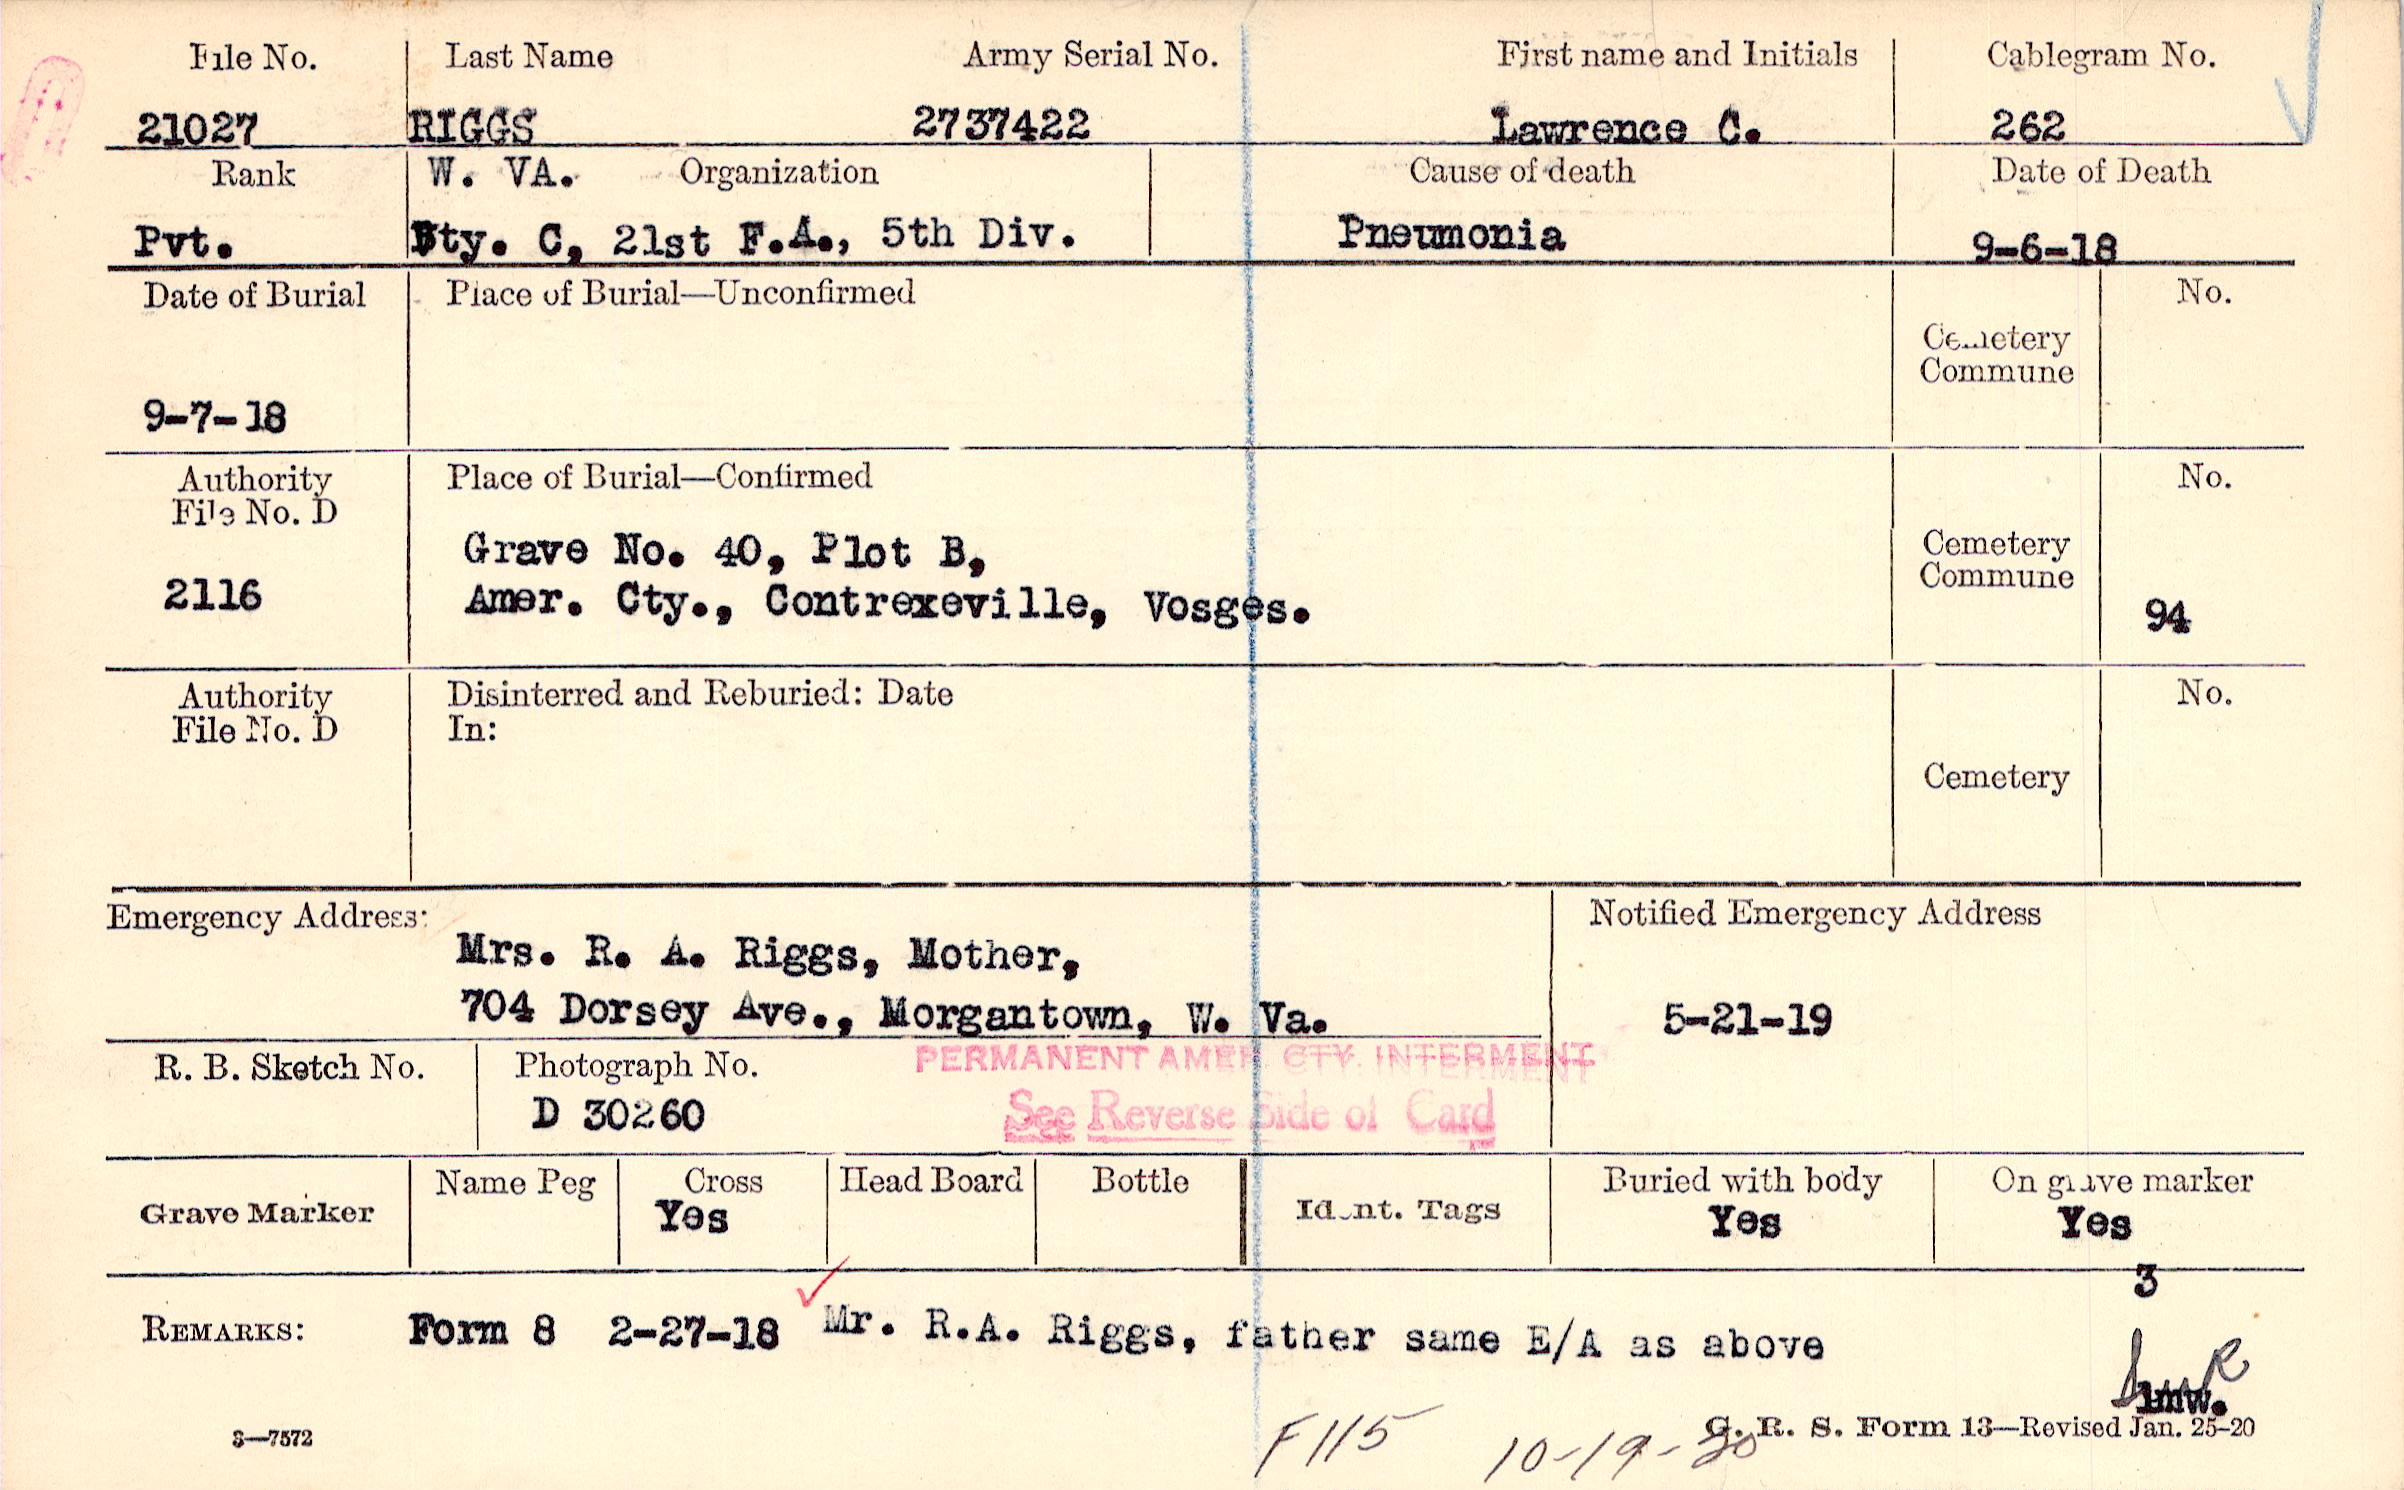 File No. Last Name Army Serial No. First name and Initials Cablegram No.
21027 RIGGS 2737422 Lawrence C. 262
Rank W. VA. Organization Cause of death Date of Death
Pvt. Bty. C, 21st F.A., 5th Div. Pneumonia 9-6-18
Date of Burial Place of Burial—Unconfirmed No.
Cemetery
Commune
9-7-18
Authority Place of Burial—Confirmed No.
File No. D
Grave No. 40, Plot B, Cemetery
Commune
2116 Amer. Cty., Contrexeville, Vosges. 94
Authority Disinterred and Reburied: Date No.
File No. D In:
Cemetery
Emergency Address: Notified Emergency Address
Mrs. R. A. Riggs, Mother,
704 Dorsey Ave., Morgantown, W. Va. 5-21-19
R. B. Sketch No. Photograph No. PERMANENT AMER CTY. INTERMENT
D 30260 See Reverse Side of Card
Name Peg Cross Head Board Bottle Buried with body On grave marker
Grave Marker Yes Ident. Tags Yes Yes
3
REMARKS: Form 8 2-27-18 Mr. R.A. Riggs, father same E/A as above
lmw.
S—7572 F115 10-19-20 G. R. S. Form 13—Revised Jan. 25-20